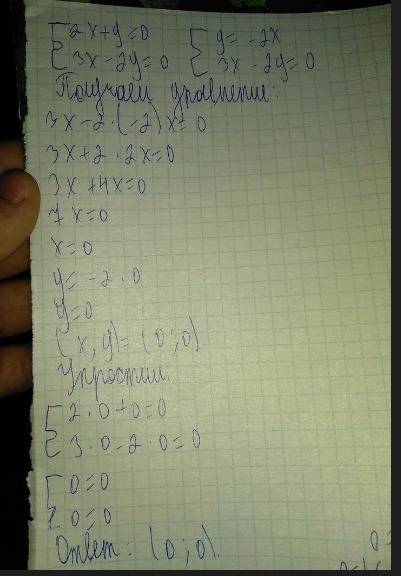 {2x+y=0 {y=-2x
{3x-2y=0 {3x-2y=0
Получаем уравнение:
3x-2·(-2)x=0
3x+2·2x=0
3x+4x=0
7x=0
x=0
y=-2·0
y=0
(x,y)=(0;0)
Упростим.
{2·0+0=0
{3·0-2·0=0
{0=0
{0=0
Ответ: (0;0).